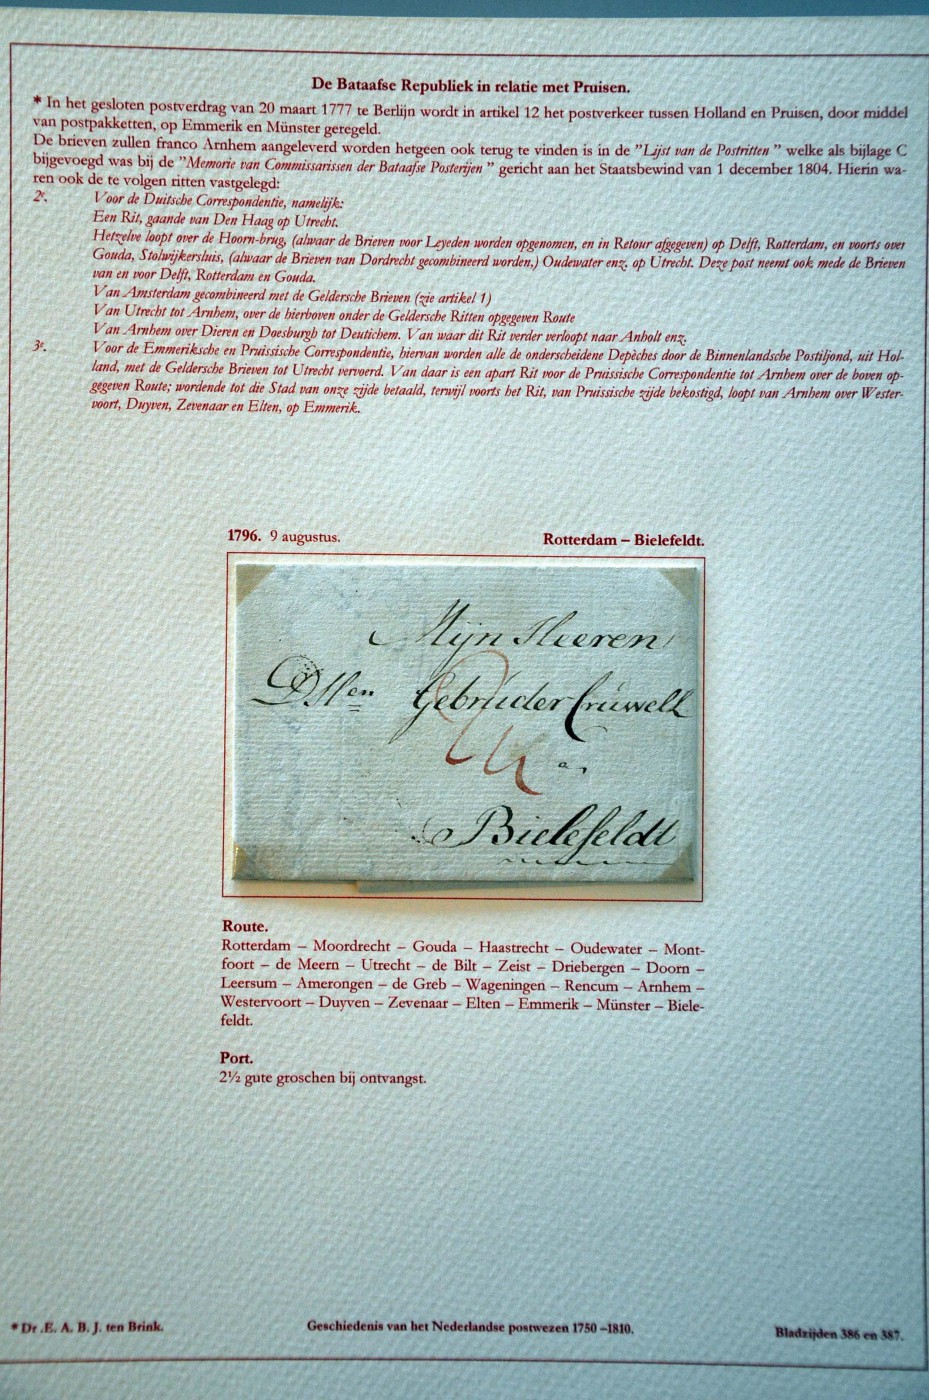 De Bataafse Republiek in relatie met Pruisen.
* In het gesloten postverdrag van 20 maart 1777 te Berlijn wordt in artikel 12 het postverkeer tussen Holland en Pruisen, door middel
van postpakketten, op Emmerik en Münster geregeld.
De brieven zullen franco Arnhem aangeleverd worden hetgeen ook terug te vinden is in de ”Lijst van de Postritten ” welke als bijlage C
bijgevoegd was bij de ”Memorie van Commissarissen der Bataafse Posterijen ” gericht aan het Staatsbewind van 1 december 1804. Hierin wa-
ren ook de te volgen ritten vastgelegd:
2e. Voor de Duitsche Correspondentie, namelijk:
Een Rit, gaande van Den Haag op Utrecht.
Hetzelve loopt over de Hoorn-brug, (alwaar de Brieven voor Leyeden worden opgenomen, en in Retour afgegeven) op Delft, Rotterdam, en voorts over
Gouda, Stolwijkersluis, (alwaar de Brieven van Dordrecht gecombineerd worden,) Oudewater enz. op Utrecht. Deze post neemt ook mede de Brieven
van en voor Delft, Rotterdam en Gouda.
Van Amsterdam gecombineerd met de Geldersche Brieven (zie artikel 1)
Van Utrecht tot Arnhem, over de hierboven onder de Geldersche Ritten opgegeven Route
Van Arnhem over Dieren en Doesburgh tot Deutichem. Van waar dit Rit verder verloopt naar Anholt enz.
3e. Voor de Emmeriksche en Pruissische Correspondentie, hiervan worden alle de onderscheidene Depèches door de Binnenlandsche Postiljond, uit Hol-
land, met de Geldersche Brieven tot Utrecht vervoerd. Van daar is een apart Rit voor de Pruissische Correspondentie tot Arnhem over de boven op-
gegeven Route; wordende tot die Stad van onze zijde betaald, terwijl voorts het Rit, van Pruissische zijde bekostigd, loopt van Arnhem over Wester-
voort, Duyven, Zevenaar en Elten, op Emmerik.
1796. 9 augustus. Rotterdam – Bielefeldt.
Mijn Heeren
DHen Gebruder Crüwell
a
Bielefeldt
Route.
Rotterdam – Moordrecht – Gouda – Haastrecht – Oudewater – Mont-
foort – de Meern – Utrecht – de Bilt – Zeist – Driebergen – Doorn –
Leersum – Amerongen – de Greb – Wageningen – Rencum – Arnhem –
Westervoort – Duyven – Zevenaar – Elten – Emmerik – Münster – Biele-
feldt.
Port.
2½ gute groschen bij ontvangst.
* Dr .E. A. B. J. ten Brink. Geschiedenis van het Nederlandse postwezen 1750 –1810. Bladzijden 386 en 387.